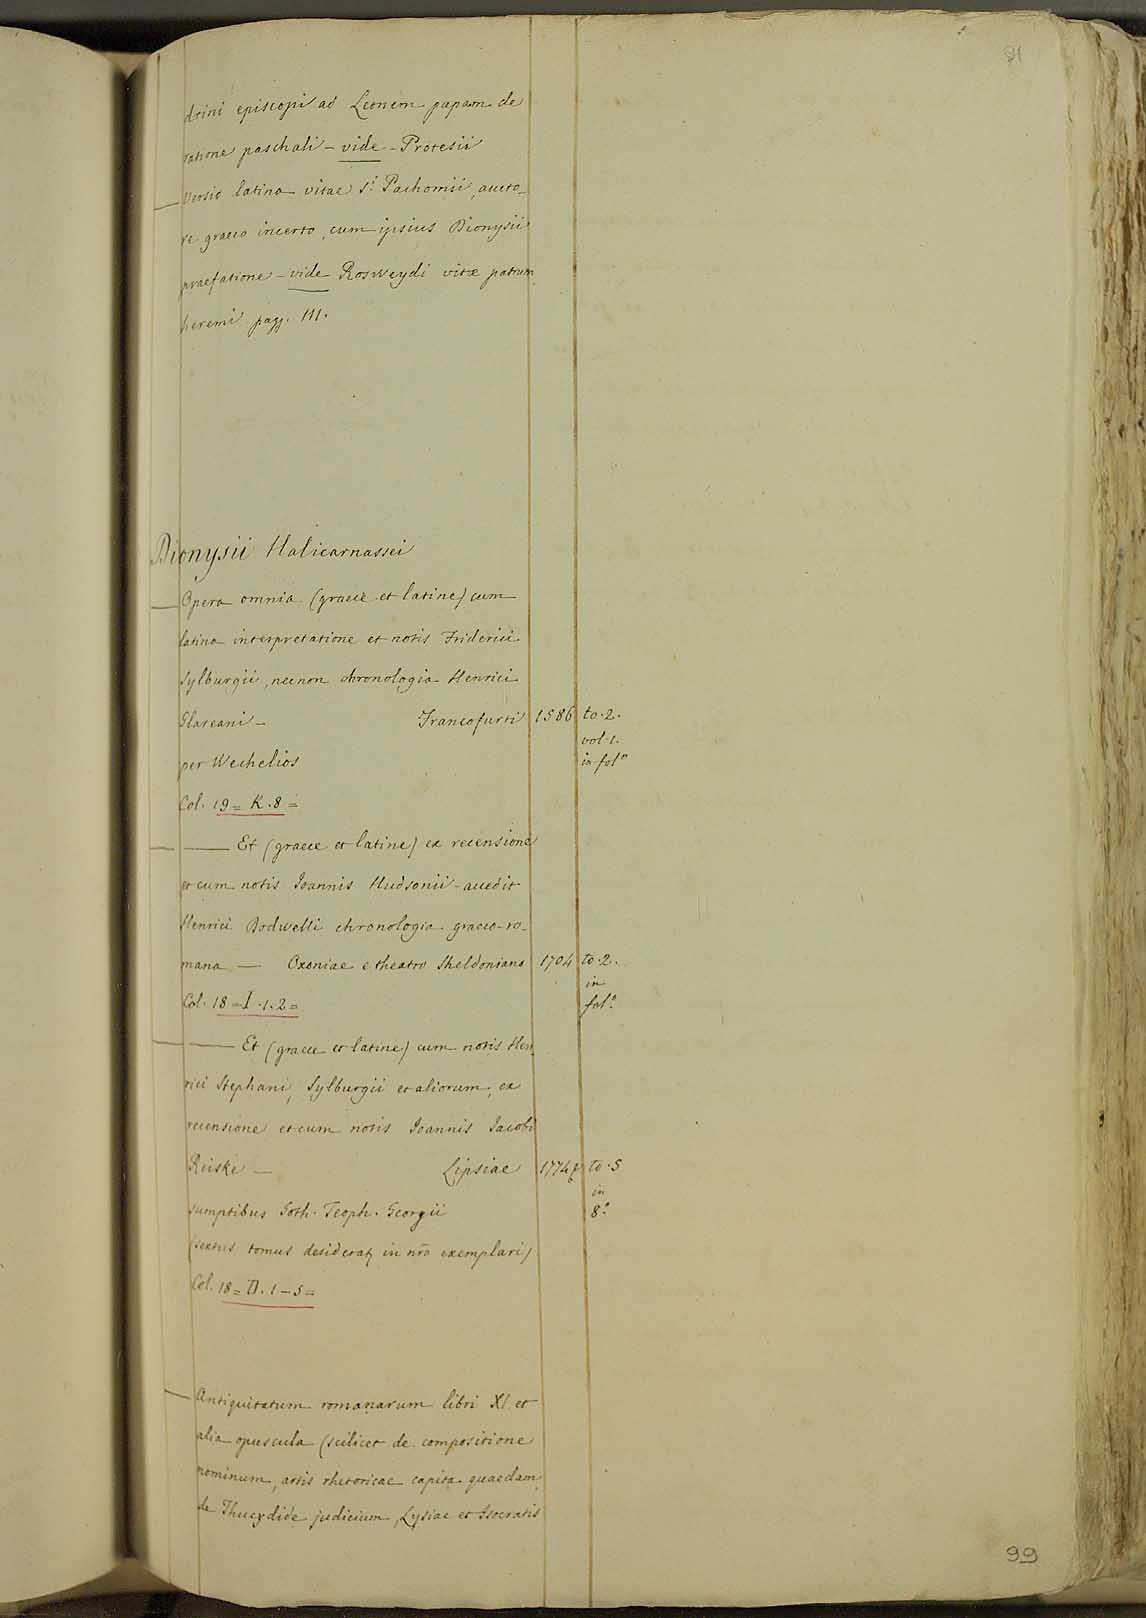 drini episcopi ad Leonem papam de
ratione paschali – vide – Protesii
— Versio latina vitae S.i Pachomii, aucto-
re graeco incerto, cum ipsius Dionysii
praefatione – vide Rosweydi vitæ patrum
heremi pag. 111.
Dionysii Halicarnassei
— Opera omnia (graece et latine) cum
latina interpretatione et notis Friderici
Sylburgii, necnon chronologia Henrici
Glareani – Francofurti 1586 to. 2.
vol. 1.
per Wechelios in fol.o
Col. 19 = K. 8 =
— — Et (graece et latine) ex recensione
et cum notis Joannis Hudsonii – accedit
Henrici Dodwelli chronologia graeco-ro-
mana — Oxoniae e theatro Sheldoniano 1704 to. 2.
in
Col. 18 = I. 1. 2 = fol.o
— — Et (graece et latine) cum notis Hen
rici Stephani, Sylburgii et aliorum, ex
recensione et cum notis Joannis Jacobi
Reiske — Lipsiae 1774 to. 5
in
sumptibus Goth. Teoph. Georgii 8.o
(sextus tomus desiderat in nr̄o exemplari)
Col. 18 = D. 1 – 5 =
— Antiquitatum romanarum libri XI. et
alia opuscula (scilicet de compositione
nominum, artis rhetoricae capita quaedam,
de Thucydide judicium, Lysiae et Isocratis
99